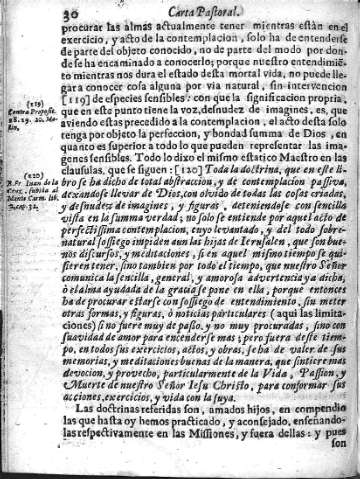 30
Carta Pastoral.
procurar las almas actualmente tener mientras estàn en el
exercicio, y acto de la contemplacion, solo ha de entenderse
de parte del objeto conocido, no de parte del modo por don-
de se ha encaminado a conocerlo; porque nuestro entendimiẽ-
to mientras nos dura el estado desta mortal vida, no puede lle-
gar a conocer cosa alguna por via natural, sin intervencion
[119] de especies sensibles: con que la significacion propria,
que en este punto tiene la voz, desnudez de imagines, es, que
aviendo estas precedido a la contemplacion, el acto desta solo
tenga por objeto la perfeccion, y bondad summa de Dios, en
quanto es superior a todo lo que pueden representar las ima-
genes sensibles. Todo lo dixo el mismo estatico Maestro en las
clausulas, que se siguen: [120] Toda la doctrina, que en este li-
bro se ha dicho de total abstraccion, y de contemplacion passiva,
dexandose llevar de Dios, con olvido de todas las cosas criadas,
y desnudez de imagines, y figuras, deteniendose con sencilla
vista en la summa verdad; no solo se entiende por aquel acto de
perfectissima contemplacion, cuyo levantado, y del todo sobre-
natural sossiego impiden aun las hijas de Ierusalen, que son bue-
nos discursos, y meditaciones, si en aquel mismo tiempo se qui-
sieren tener, sino tambien por todo el tiempo, que nuestro Señor
comunica la sencilla, general, y amorosa advertencia ya dicha,
ò el alma ayudada de la gracia se pone en ella, porque entonces
ha de procurar estarse con sossiego de entendimiento, sin meter
otras formas, y figuras, ò noticias particulares ( aqui las limita-
ciones) si no fuere muy de passo, y no muy procuradas, sino con
suavidad de amor para encenderse mas; pero fuera deste tiem-
po, en todos sus exercicios, actos, y obras, se ha de valer de sus
memorias, y meditaciones buenas de la manera, que sintiere mas
devocion, y provecho, particularmente de la Vida, Passion, y
Muerte de nuestro Señor Iesu Christo, para conformar sus
acciones, exercicios, y vida con la suya.
Las doctrinas referidas son, amados hijos, en compendio
las que hasta oy hemos practicado, y aconsejado, enseñando-
las respectivamente en las Missiones, y fuera dellas: y pues
son
(119)
18. 19. 20.
(120)
R. Fr. Iuan de la
Cruz, subida al
Monte Carm. lib.